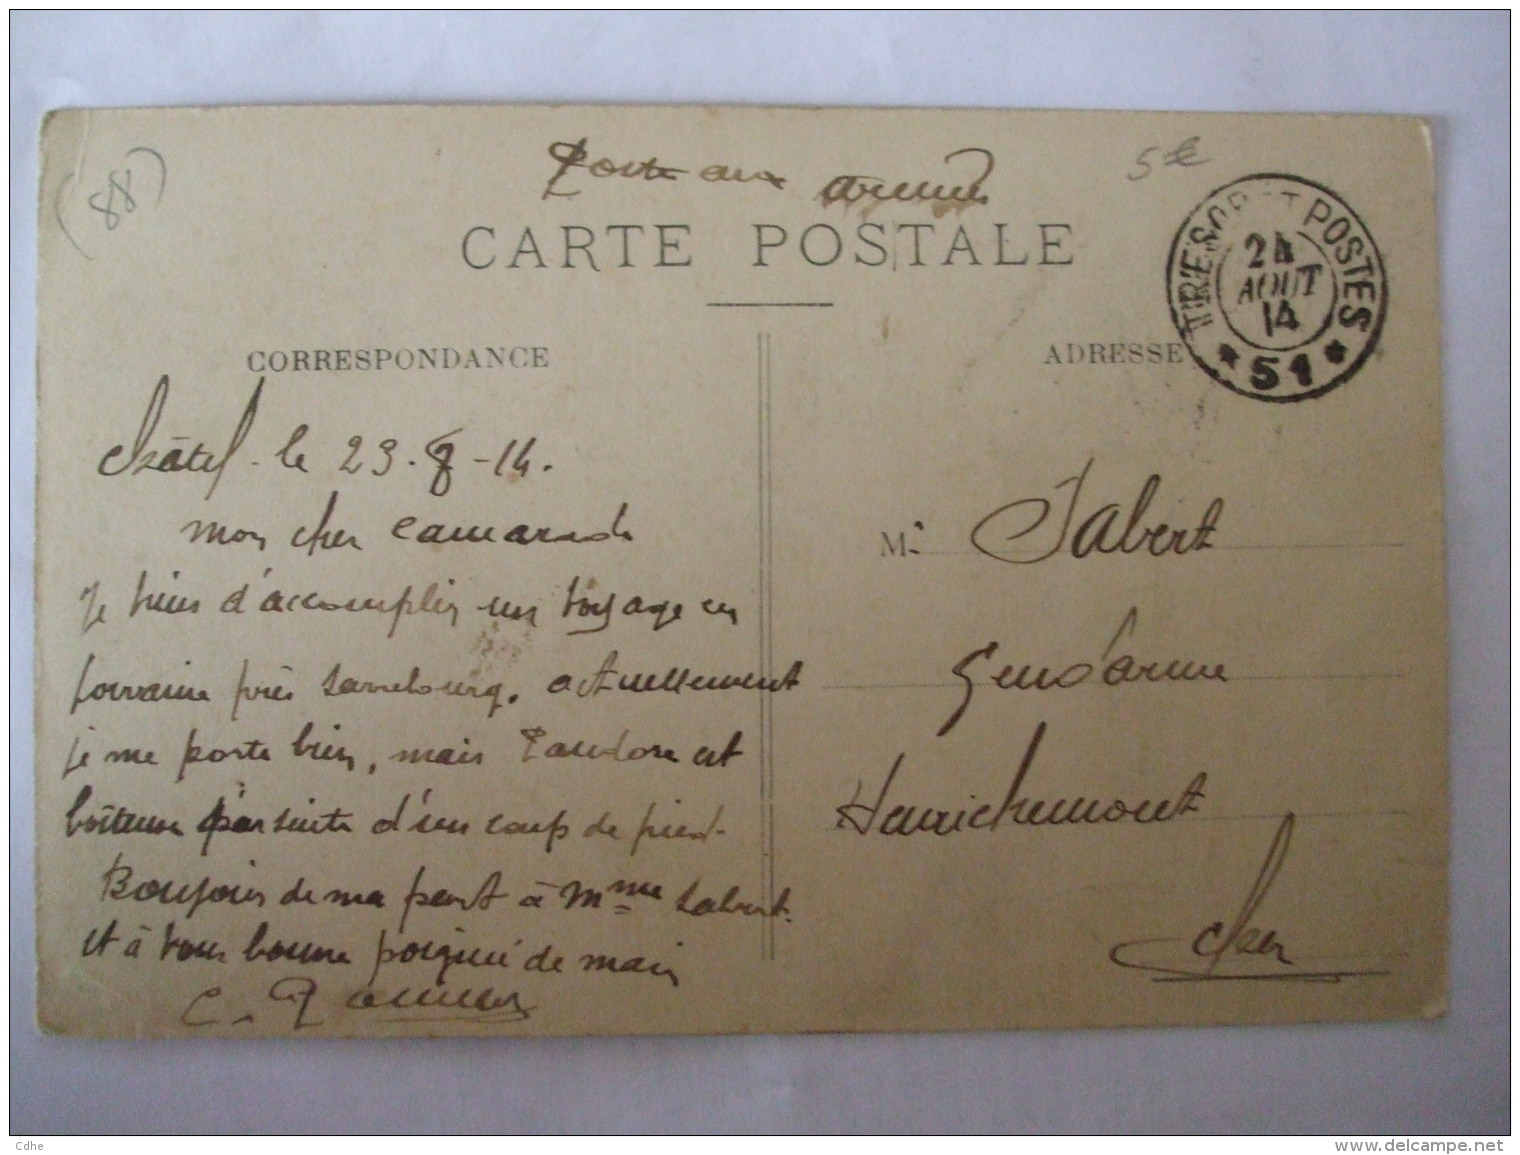 (88)
Poste aux armées
5 le
CARTE POSTALE
TRESOR ET POSTES
24
AOUT
14
* 51 *
CORRESPONDANCE
ADRESSE
Châtel. le 23-8-14.
Mon cher Camarade
Je viens d'accomplir un voyage en
Lorraine près Sarrebourg. actuellement
je me porte bien, mais Pandore est
boiteuse par suite d'un coup de pied.
Bonjour de ma part à Mme Jabert.
et à vous bonne poignée de main
C.
M. Jabert
Gendarme
Henrichemont
Cher
Cdhe
www.delcampe.net